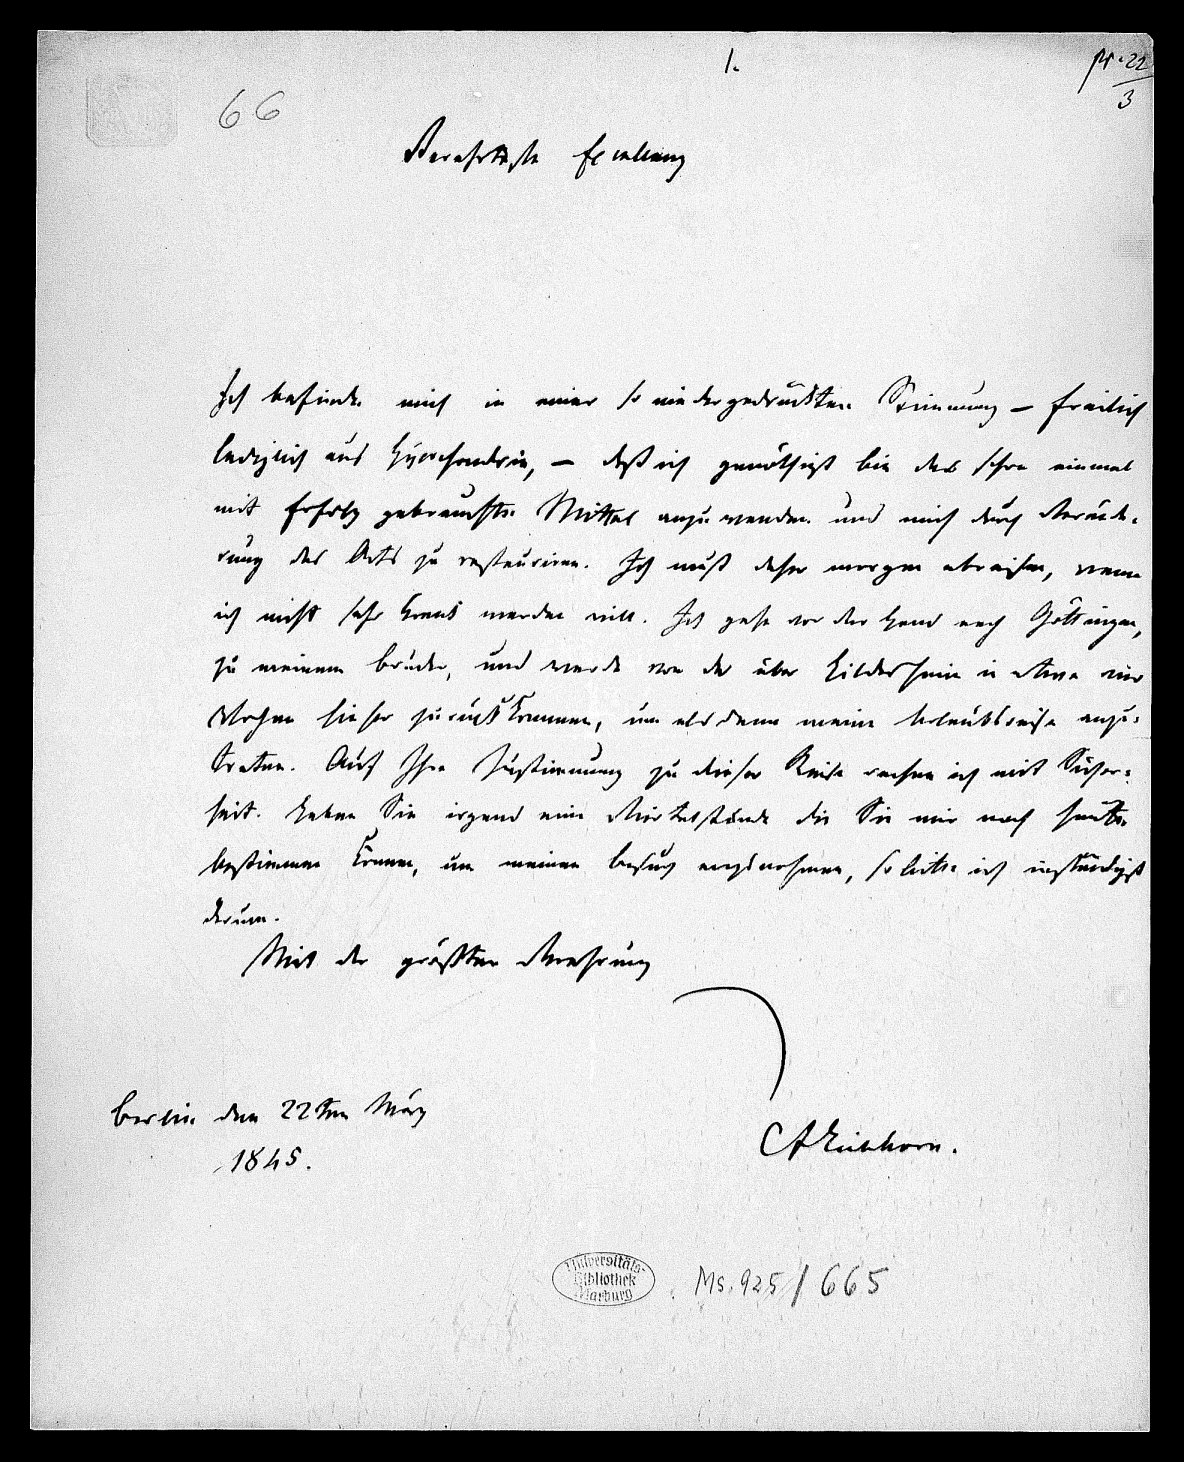 1.
pr. 22
3
66
Verehrteste Excellenz
Ich befinde mich in einer so niedergedrückten Stimmung – freilich
lediglich aus Hypochondrie, – daß ich genöthigt bin das schon einmal
mit Erfolg gebrauchte Mittel anzuwenden und mich durch Verände-
rung des Orts zu restauriren. Ich muß daher morgen abreisen, wenn
ich nicht sehr krank werden will. Ich gehe vor der Hand nach Göttingen,
zu meinem Bruder, und werde von da über Hildesheim in etwa vier
Wochen hieher zurückkommen, um alsdann meine Urlaubsreise anzu-
treten. Auf Ihre Zustimmung zu dieser Reise rechne ich mit Sicher-
heit. Haben Sie irgend eine Viertelstunde die Sie mir noch heute
bestimmen können, um meinen Besuch anzunehmen, so bitte ich inständigst
darum.
Mit der größten Verehrung
Berlin den 22ten März
1845.
CFEichhorn.
Universitäts-
Bibliothek
Marburg
Ms. 925/665